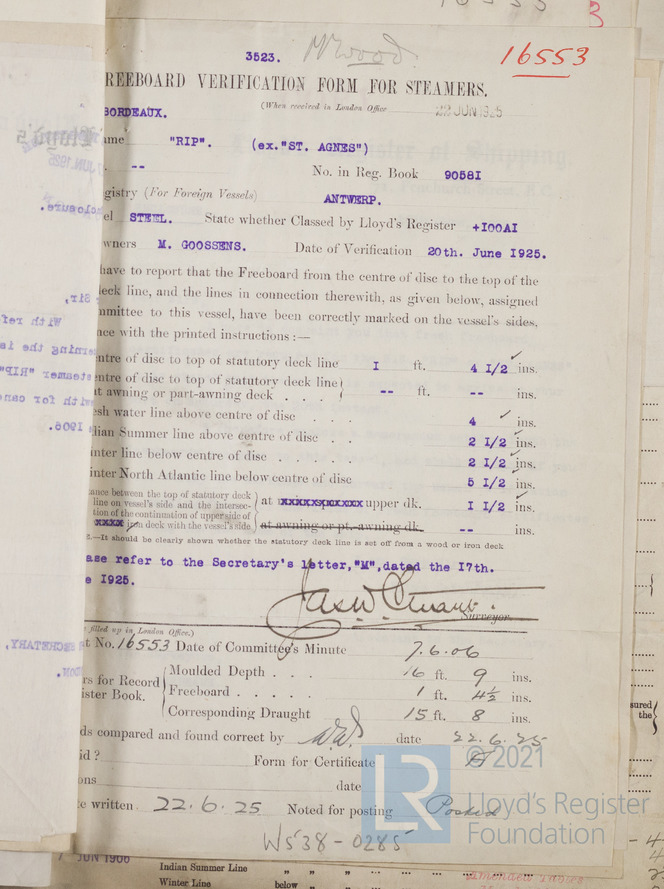 16553
3523.
REEBOARD VERIFICATION FORM FOR STEAMERS.
(When received in London Office 22 JUN 1925
BORDEAUX.
ame "RIP". (ex."ST. AGNES")
-- No. in Reg. Book 9058I
gistry (For Foreign Vessels) ANTWERP.
el STEEL. State whether Classed by Lloyd's Register +I00AI
wners M. GOOSSENS. Date of Verification 20th. June I925.
have to report that the Freeboard from the centre of disc to the top of the
deck line, and the lines in connection therewith, as given below, assigned
mmittee to this vessel, have been correctly marked on the vessel's sides,
nce with the printed instructions :—
ntre of disc to top of statutory deck line I ft. 4 I/2 ins.
entre of disc to top of statutory deck line
at awning or part-awning deck . . . -- ft. -- ins.
esh water line above centre of disc . . . 4 ins.
dian Summer line above centre of disc . . 2 I/2 ins.
inter line below centre of disc . . . . . 2 I/2 ins.
inter North Atlantic line below centre of disc 5 I/2 ins.
ance between the top of statutory deck
line on vessel's side and the intersec-
tion of the continuation of upper side of
iron deck with the vessel's side
at upper dk. I I/2 ins.
at awning or pt.-awning dk. -- ins.
—It should be clearly shown whether the statutory deck line is set off from a wood or iron deck
ase refer to the Secretary's letter,"M",dated the I7th.
e I925.
Surveyor.
filled up in London Office.)
t No. 16553 Date of Committee's Minute 7.6.06
rs for Record
ister Book.
Moulded Depth . . . 16 ft. 9 ins.
Freeboard . . . . . 1 ft. 4½ ins.
Corresponding Draught 15 ft. 8 ins.
ds compared and found correct by date 22.6.25
id ? Form for Certificate
ons date
te written 22.6.25 Noted for posting Posted
W538-0285
© 2021
LR
Lloyd's Register
Foundation
JUN 1906
Indian Summer Line " " "
Winter Line below " "
sured
the